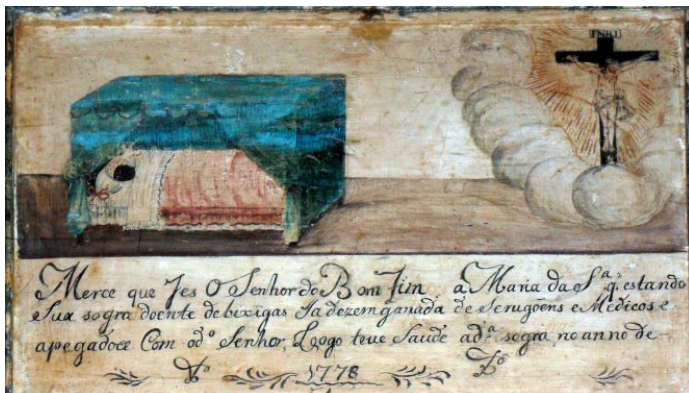 INRI
Merce que Fes O Senhor do Bom Fim a Maria da Sª q. estando
Sua sogra doente de bixigas Ja dezemganada de Serugoens e Medicos e
apegadoce Com o dº Senhor, Logo teve Saude a dª sogra, no anno de
1778